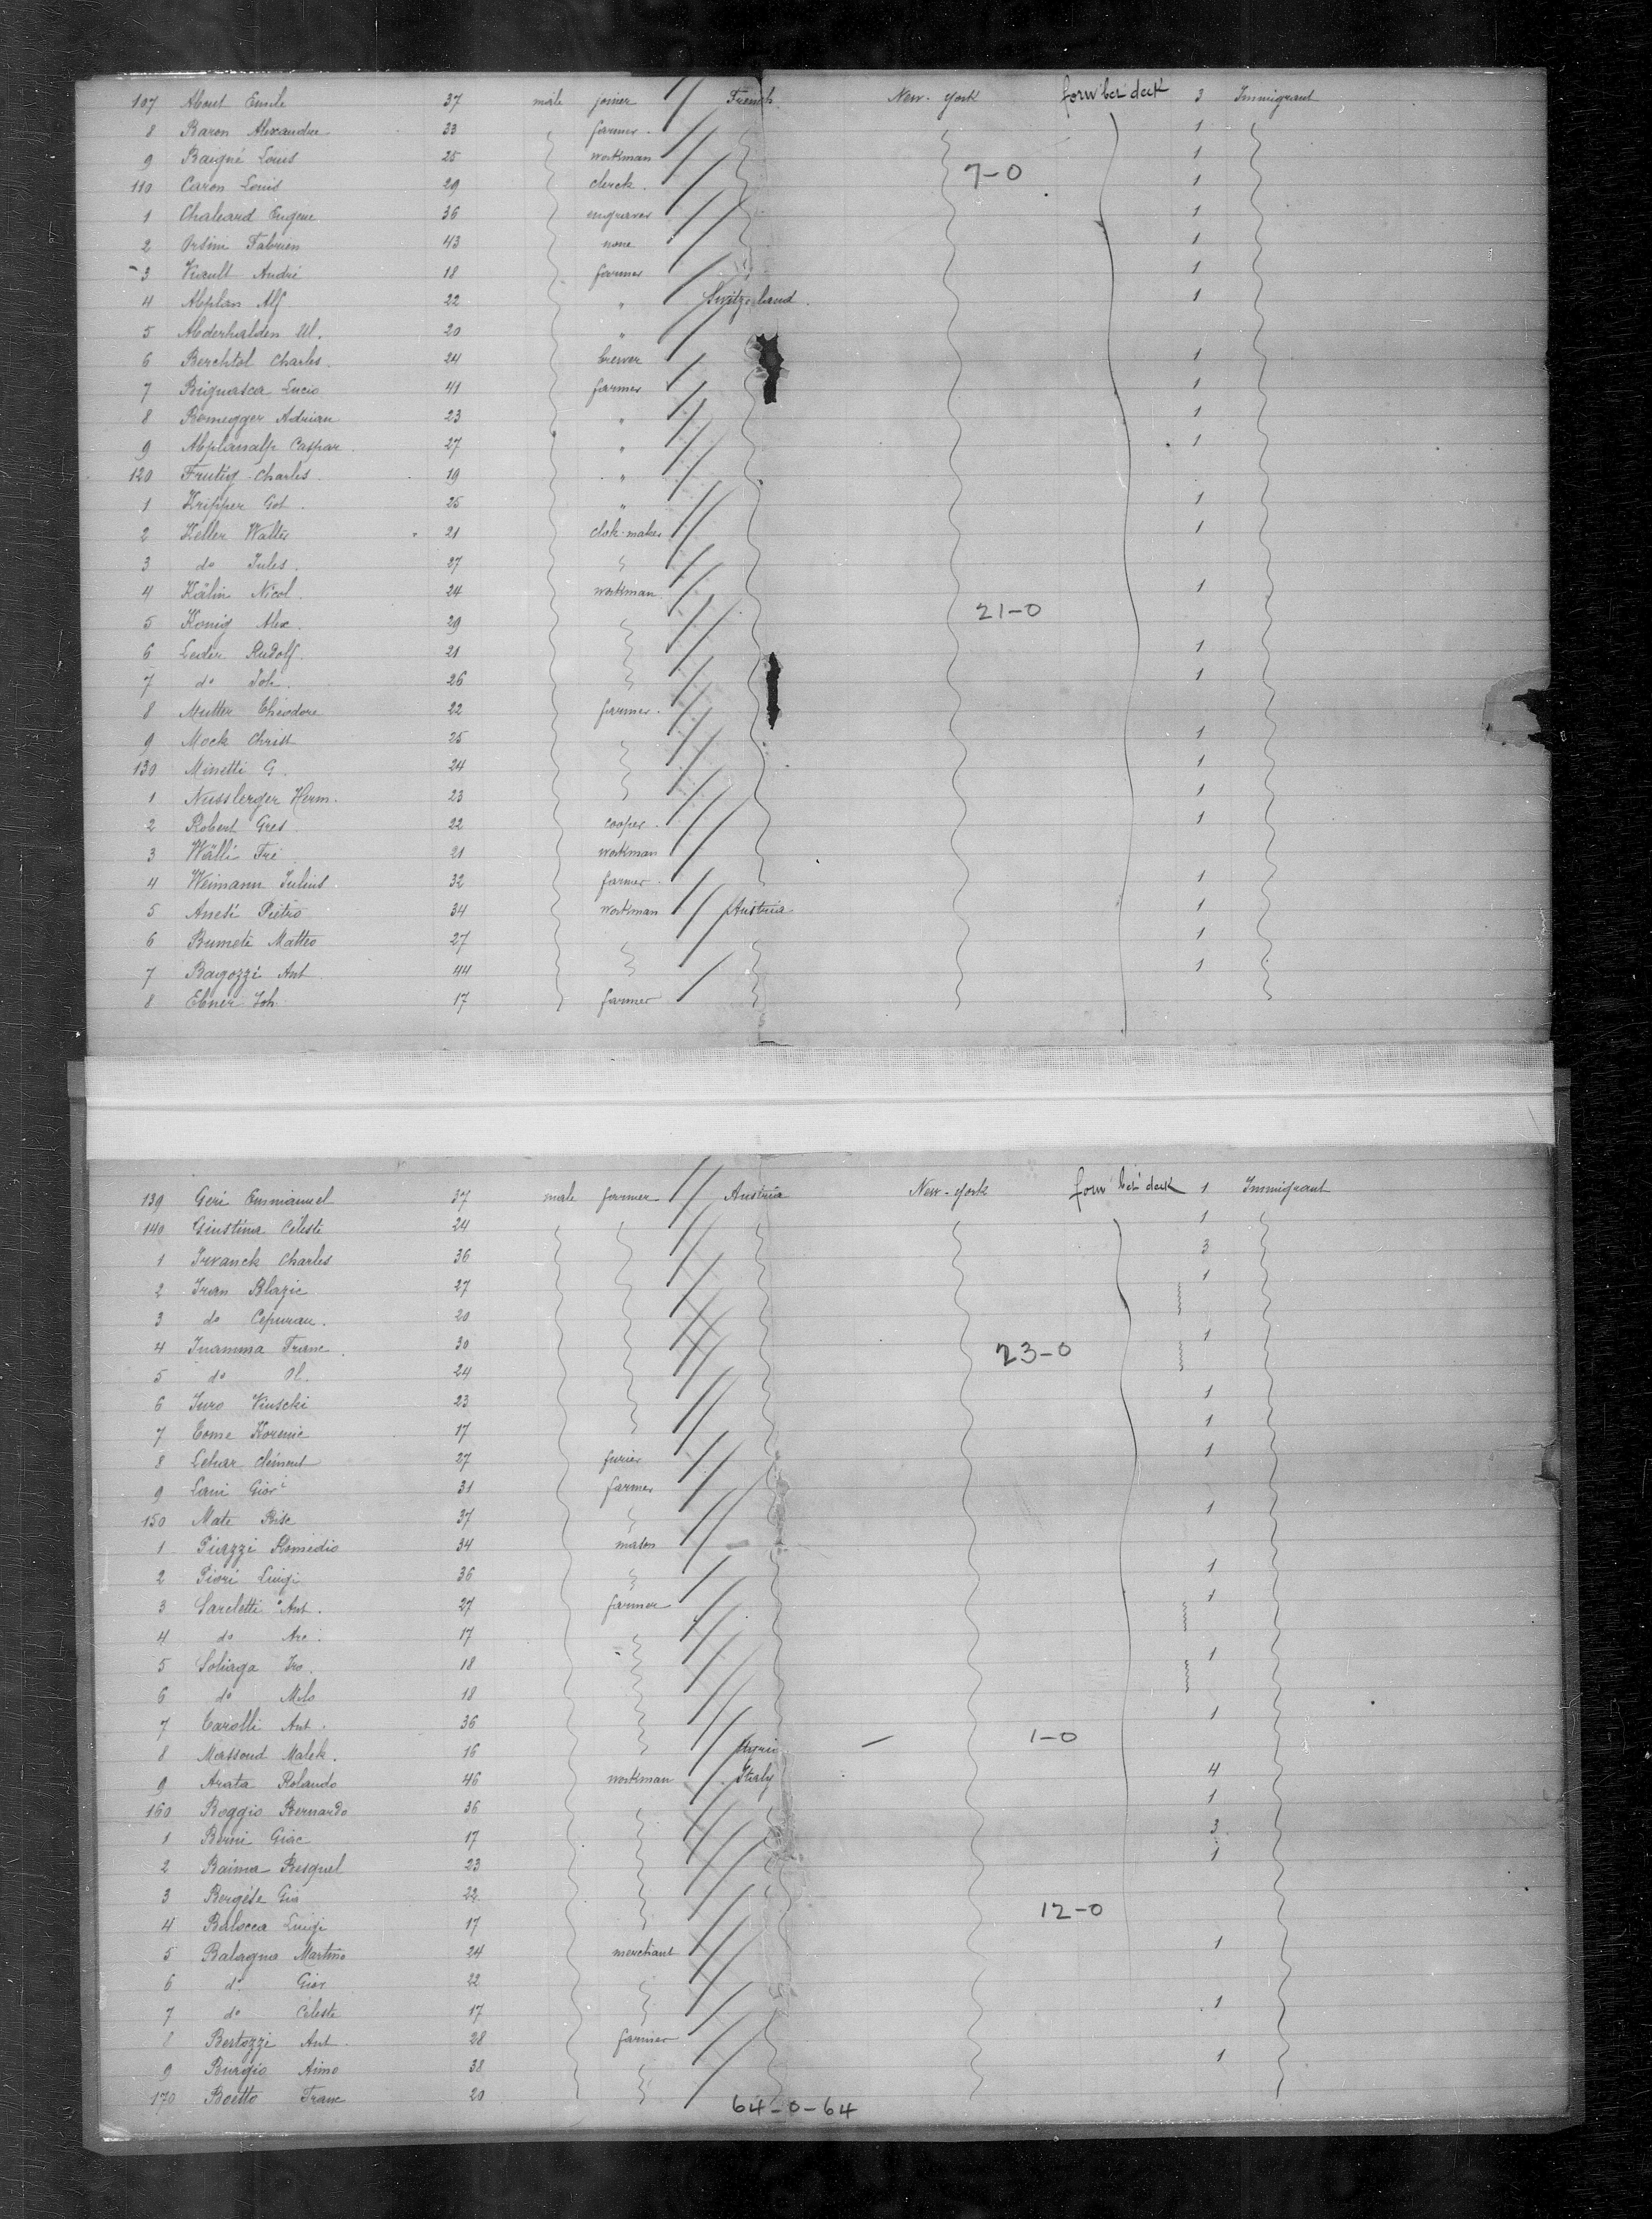 107 About Emile 37 male joiner French New-York forw bet deck 3 Immigrant
8 Baron Alexandre 33 farmer 1
9 Baigné Louis 25 workman 1
7-0
110 Caron Louis 29 clerck 1
1 Chaleard Eugene 36 engraver 1
2 Orsini Fabrien 43 none 1
3 Viault André 18 farmer 1
4 Abplan Alf 22 " Switzerland 1
5 Abderhalden Ul. 20 "
6 Berchtol Charles 24 brewer 1
7 Bignasca Lucio 41 farmer 1
8 Romegger Adrian 23 " 1
9 Abplanalp Caspar 27 " 1
120 Frutig Charles 19 "
1 Kripper Got 25 " 1
2 Keller Walter 21 clok-maker 1
3 do Jules 27
4 Kälin Nicol 24 workman 1
21-0
5 Konig Alex. 29
6 Leder Rudolf 21 1
7 do Joh. 26 1
8 Mutter Theodore 22 farmer
9 Mock Christ 25 1
130 Minetti G. 24 1
1 Nussberger Herm. 23 1
2 Robert Gres 22 cooper 1
3 Wälli Fre 21 workman
4 Weimann Julius 32 farmer 1
5 Anesi Pietro 34 workman Austria 1
6 Bumeti Matteo 27 1
7 Bagozzi Ant 44 1
8 Ebner Joh. 17 farmer
139 Geri Emmanuel 37 male farmer Austria New-York forw bet deck 1 Immigrant
140 Giustina Celeste 24 1
1 Irvanck Charles 36 3
2 Ivan Blazic 27 1
3 do Cepuran. 20
4 Inamma Franc 30 1
23-0
5 do Ol. 24
6 Juro Viuscki 23 1
7 Tome Korenic 17 1
8 Lehar Clément 27 furier 1
9 Lani Giov 31 farmer
150 Mate Bise 37 1
1 Piazzi Romedio 34 mason
2 Piori Luigi 36 1
3 Sarcletti Ant. 27 farmer 1
4 do Arc. 17
5 Soliaga Iro. 18 1
6 do Milo 18
7 Tarolli Ant. 36 1
8 Massoud Malek. 16 Syria 1-0
9 Arata Rolando 46 workman Italy 4
160 Boggio Bernardo 36 1
1 Berni Giac 17 3
2 Baima Besquel 23 1
3 Borgese Gia 22
12-0
4 Balocca Luigi 17
5 Balagna Martino 24 merchant 1
6 do Giov 22
7 do Celeste 17 1
8 Bertozzi Ant. 28 farmer
9 Burgio Aimo 38 1
170 Boetto Franc 20
64-0-64